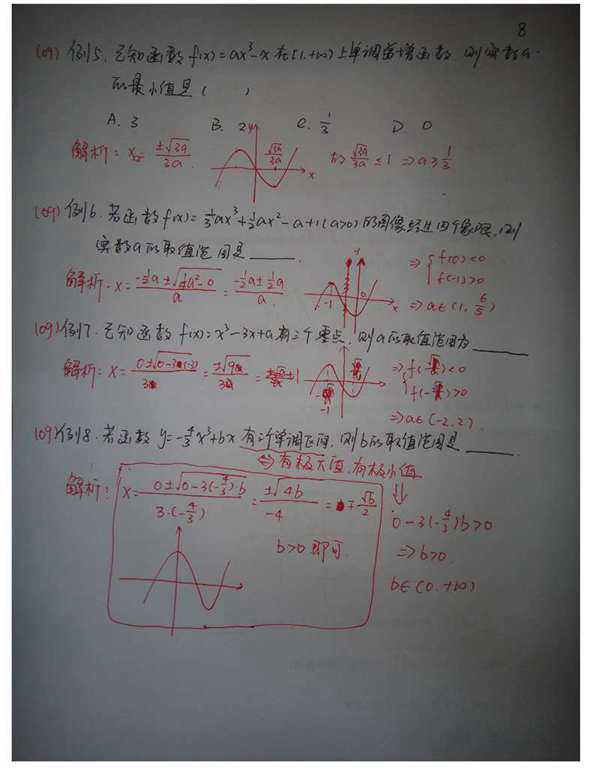 8
(09) 例5. 已知函数 f(x)=ax³-x 在[1,+∞)上单调增函数, 则实数a
的最小值是 ( )
A. 3 B. 2 C. 1/3 D. 0
解析: x = ±√3a / 3a y √3a/3a x 故 √3a/3a ≤ 1 ⇒ a ≥ 1/3
(09) 例6. 若函数 f(x)= 1/3ax³+1/2ax²-a+1 (a>0) 的图像经过四个象限, 则
实数a的取值范围是
解析: x = (-1/2a ± √(1/4a²-0)) / a = (-1/2a ± 1/2a) / a -1 0 x ⇒ { f(0)<0 f(-1)>0
⇒ a∈(1, 6/5)
(09) 例7. 已知函数 f(x)=x³-3x+a 有三个零点, 则a的取值范围为
解析: x = 0±√(0-3(-3)) / 3 = ±√9 / 3 = ±1 -1 ⇒ { <0 >0
⇒ a∈(-2,2)
(09) 例8. 若函数 y=-4/3x³+bx 有三个单调区间, 则b的取值范围是
⇔ 有极大值, 有极小值
解析: x = 0±√(0-3(-4/3)·b) / 3·(-4/3) = ±√4b / -4 = ∓ √b/2
⇓
0-3(-4/3)b>0
b>0 即可.
⇒ b>0.
b∈(0,+∞)